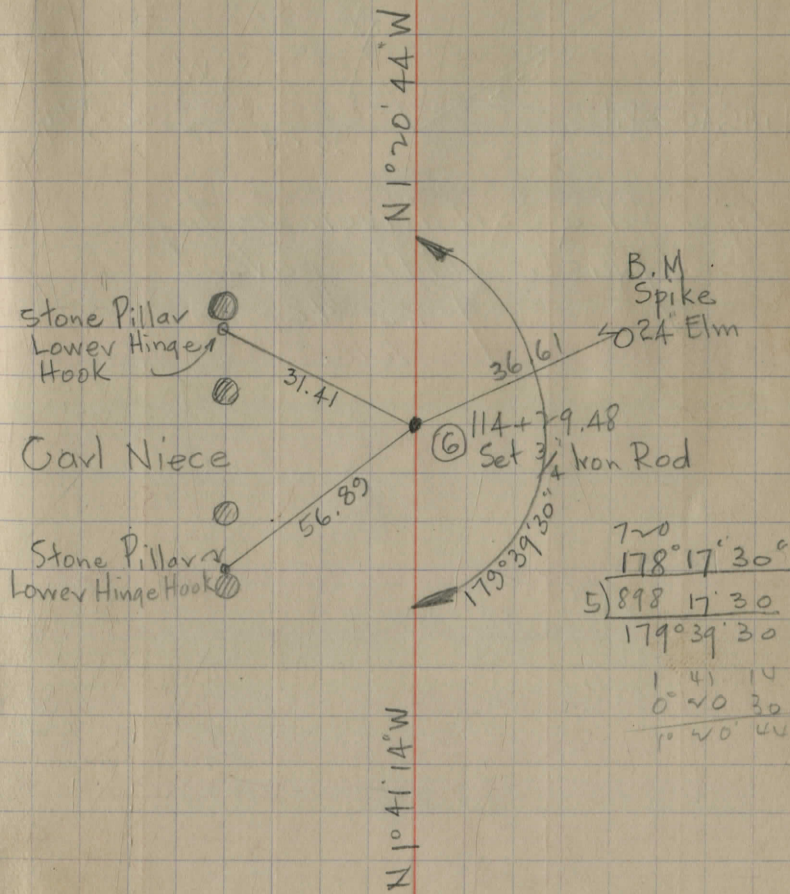 N 1° 20' 44" W
B.M.
Spike
24" Elm
Stone Pillar
Lower Hinge
Hook
31.41
36.61
⑥ 114+79.48
Set 3/4" Iron Rod
Carl Niece
56.89
Stone Pillar
Lower Hinge Hook
179° 39' 30"
720
178° 17' 30"
5)898 17 30
179° 39' 30
1 41 14
0° 20 30
1° 20' 44
N 1° 41' 14" W